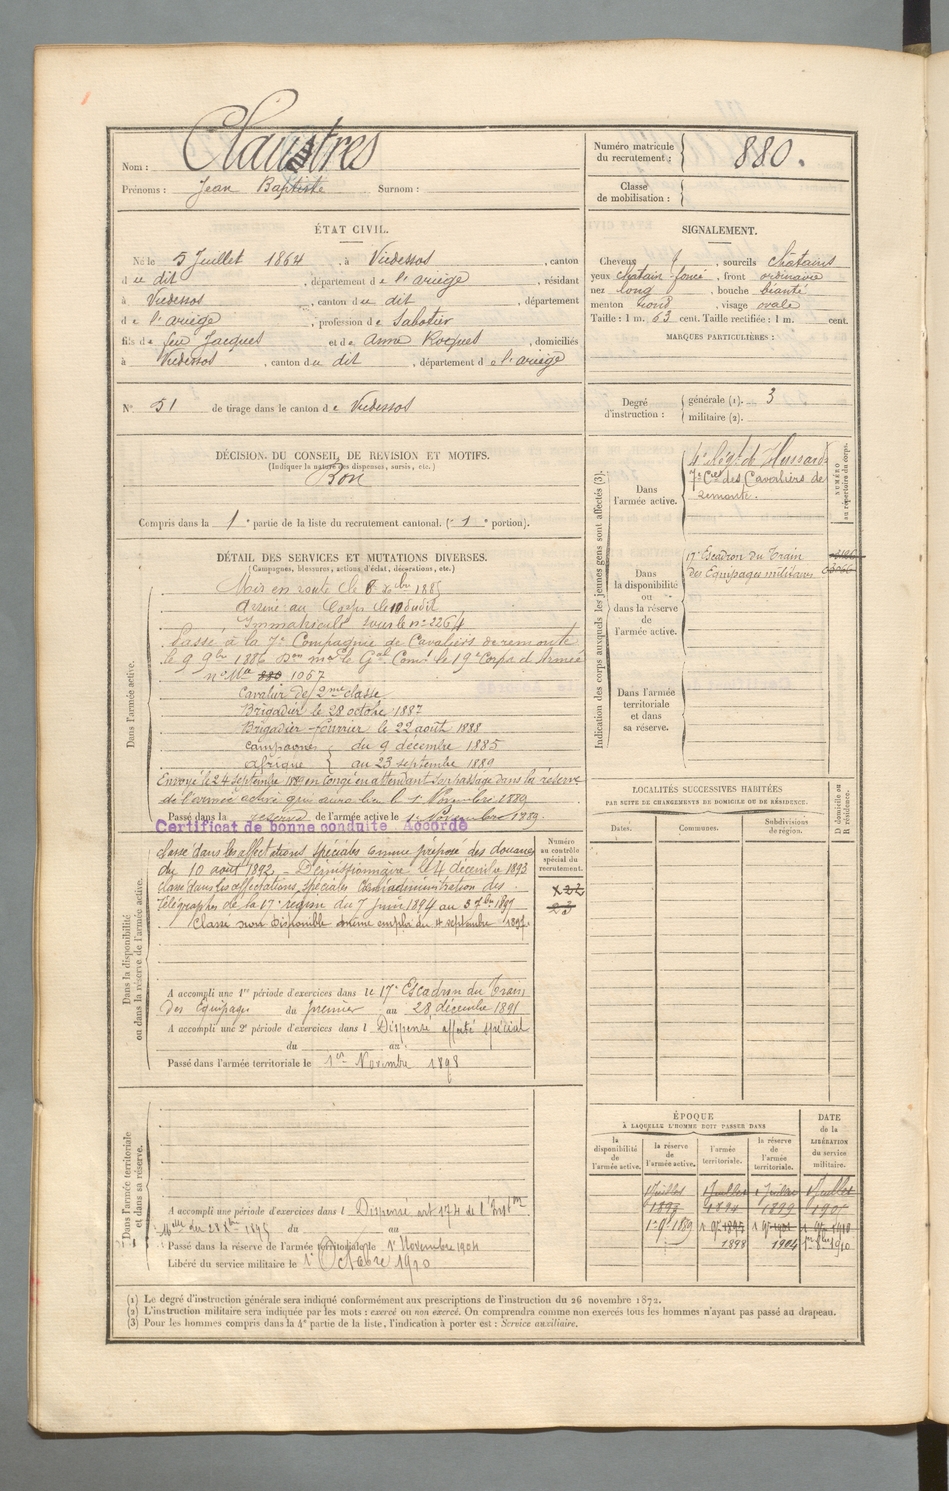 Nom : Claustres
Prénoms : Jean Baptiste Surnom :
Numéro matricule du recrutement : 880.
Classe de mobilisation :
ÉTAT CIVIL.
Né le 5 Juillet 1864, à Vicdessos, canton
du dit, département de l'ariège, résidant
à Vicdessos, canton du dit, département
de l'ariège, profession de Sabotier
fils de feu Jacques et de Anne Rocques, domiciliés
à Vicdessos, canton du dit, département de l'ariège
N° 51 de tirage dans le canton de Vicdessos
SIGNALEMENT.
Cheveux, sourcils châtains
yeux chatain foncé, front ordinaire
nez long, bouche béante
menton rond, visage ovale
Taille : 1 m. 63 cent. Taille rectifiée : 1 m. cent.
MARQUES PARTICULIÈRES :
Degré d'instruction : générale (1). 3
militaire (2).
DÉCISION DU CONSEIL DE REVISION ET MOTIFS.
(Indiquer la nature des dispenses, sursis, etc.)
Bon
Compris dans la 1e partie de la liste du recrutement cantonal. (1e portion).
DÉTAIL DES SERVICES ET MUTATIONS DIVERSES.
(Campagnes, blessures, actions d'éclat, décorations, etc.)
Dans l'armée active.
Mis en route le 8 Xbre 1885
Arrivé au Corps le 10 dudit
Immatriculé sous le n° 2264
Passé à la 7e Compagnie de Cavaliers de remonte
le 9 9bre 1886 le Gal Comt le 19e Corps d'Armée
n° Mle 880 1067
Cavalier de 2me classe
Brigadier le 28 octobre 1887
Brigadier-fourrier le 22 août 1888
Campagnes du 9 décembre 1885
Afrique au 23 septembre 1889
Envoyé le 24 septembre 1889 en congé en attendant son passage dans la réserve
de l'armée active qui aura lieu le 1er Novembre 1889
Passé dans la réserve de l'armée active le 1er Novembre 1889.
Certificat de bonne conduite Accordé
Dans la disponibilité ou dans la réserve de l'armée active.
Classé dans les affectations spéciales comme préposé des douanes
du 10 août 1892 - Démissionnaire le 4 décembre 1893
Classé dans les affectations spéciales administration des
Télégraphes de la 17e région du 7 Juin 1894 au 3 7bre 1897
Classé non disponible même emploi du 4 septembre 1897.
A accompli une 1re période d'exercices dans le 17e Escadron du Train
des Equipages du premier au 28 décembre 1891
A accompli une 2e période d'exercices dans l Dispensé affecté spécial
du au
Passé dans l'armée territoriale le 1er Novembre 1898
Numéro au contrôle spécial du recrutement.
Dans l'armée territoriale et dans sa réserve.
A accompli une période d'exercices dans l Dispensé art 174 de l'Inston
Mlle du 28 Xbre 1895 du au
Passé dans la réserve de l'armée territoriale le 1er Novembre 1904
Libéré du service militaire le 1er Octobre 1910
Indication des corps auxquels les jeunes gens sont affectés (3).
Dans l'armée active.
4e Régt de Hussards
7e Cie des Cavaliers de
remonte.
NUMÉRO au répertoire du corps.
Dans la disponibilité ou dans la réserve de l'armée active.
17e Escadron du Train
des Equipages militaires
Dans l'armée territoriale et dans sa réserve.
LOCALITÉS SUCCESSIVES HABITÉES
PAR SUITE DE CHANGEMENTS DE DOMICILE OU DE RÉSIDENCE.
Dates. Communes. Subdivisions de région. D domicile ou R résidence.
ÉPOQUE
À LAQUELLE L'HOMME DOIT PASSER DANS
la disponibilité de l'armée active. la réserve de l'armée active. l'armée territoriale. la réserve de l'armée territoriale.
DATE de la LIBÉRATION du service militaire.
1 Juillet 1 Juillet 1 Juillet 1 Juillet
1890 1894 1899 1905
1er 9bre 1889
1898 1904 1910
(1) Le degré d'instruction générale sera indiqué conformément aux prescriptions de l'instruction du 26 novembre 1872.
(2) L'instruction militaire sera indiquée par les mots : exercé ou non exercé. On comprendra comme non exercés tous les hommes n'ayant pas passé au drapeau.
(3) Pour les hommes compris dans la 4e partie de la liste, l'indication à porter est : Service auxiliaire.